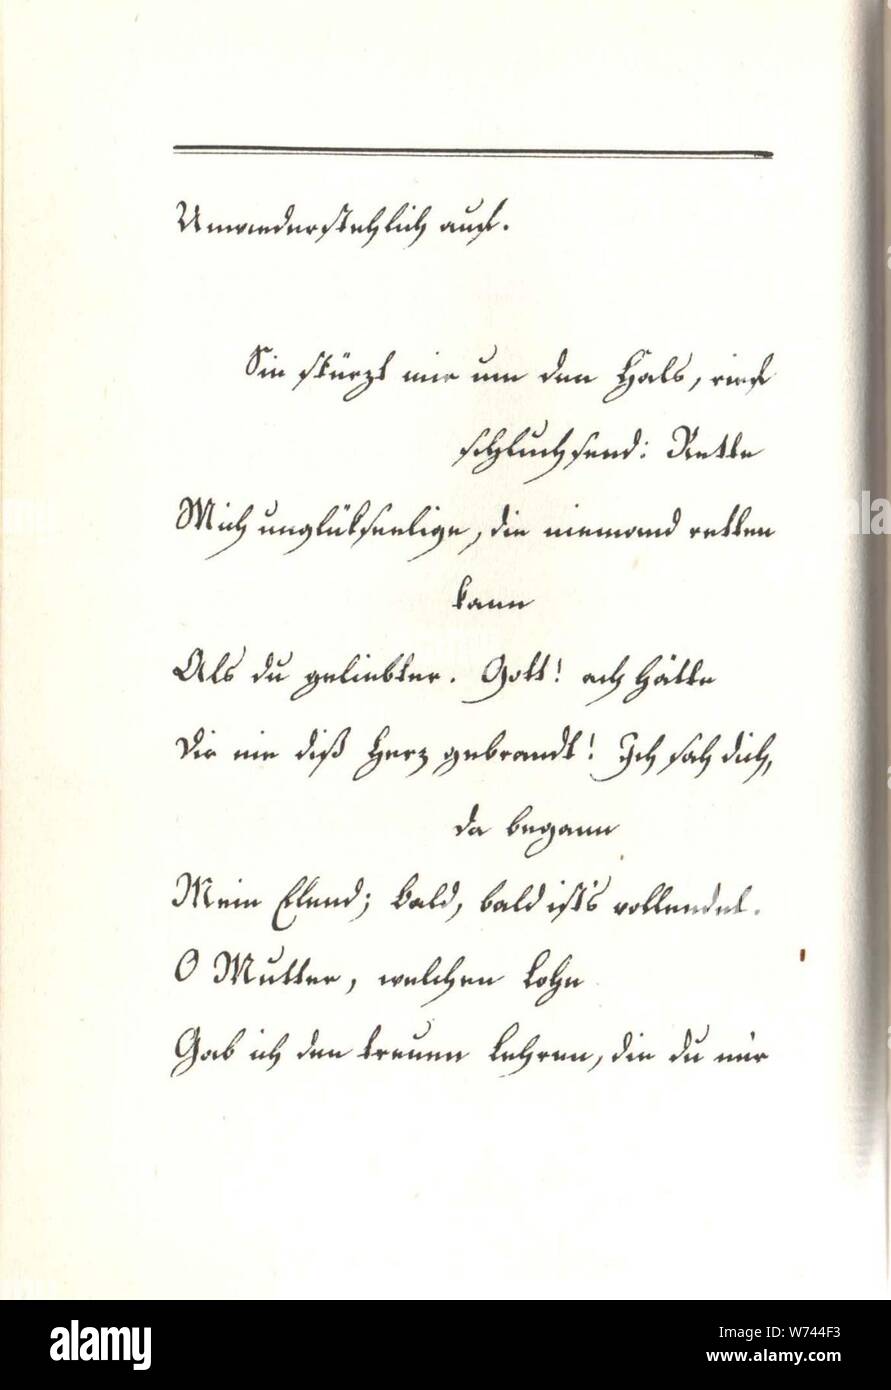 Unwiederstehlich auf.
Sie stürzt mir um den Hals, rief
schluchsend: Rette
Mich unglükseelige, die niemand retten
kann
Als du geliebter. Gott! ach hätte
Dir nie diß Herz gebrandt! Ich sah dich,
da begann
Mein Elend; bald, bald ist's vollendet.
O Mutter, welchen Lohn
Gab ich den treuen Lehren, die du mir
alamy
Image ID: W744F3
www.alamy.com